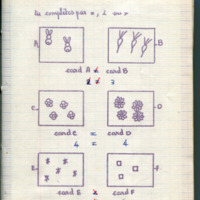 Tu complètes par =, ≠ ou
A
B
card A ≠ card B
2 ≠ 3
C
D
card C = card D
4 = 4
E
F
card E ≠ card F